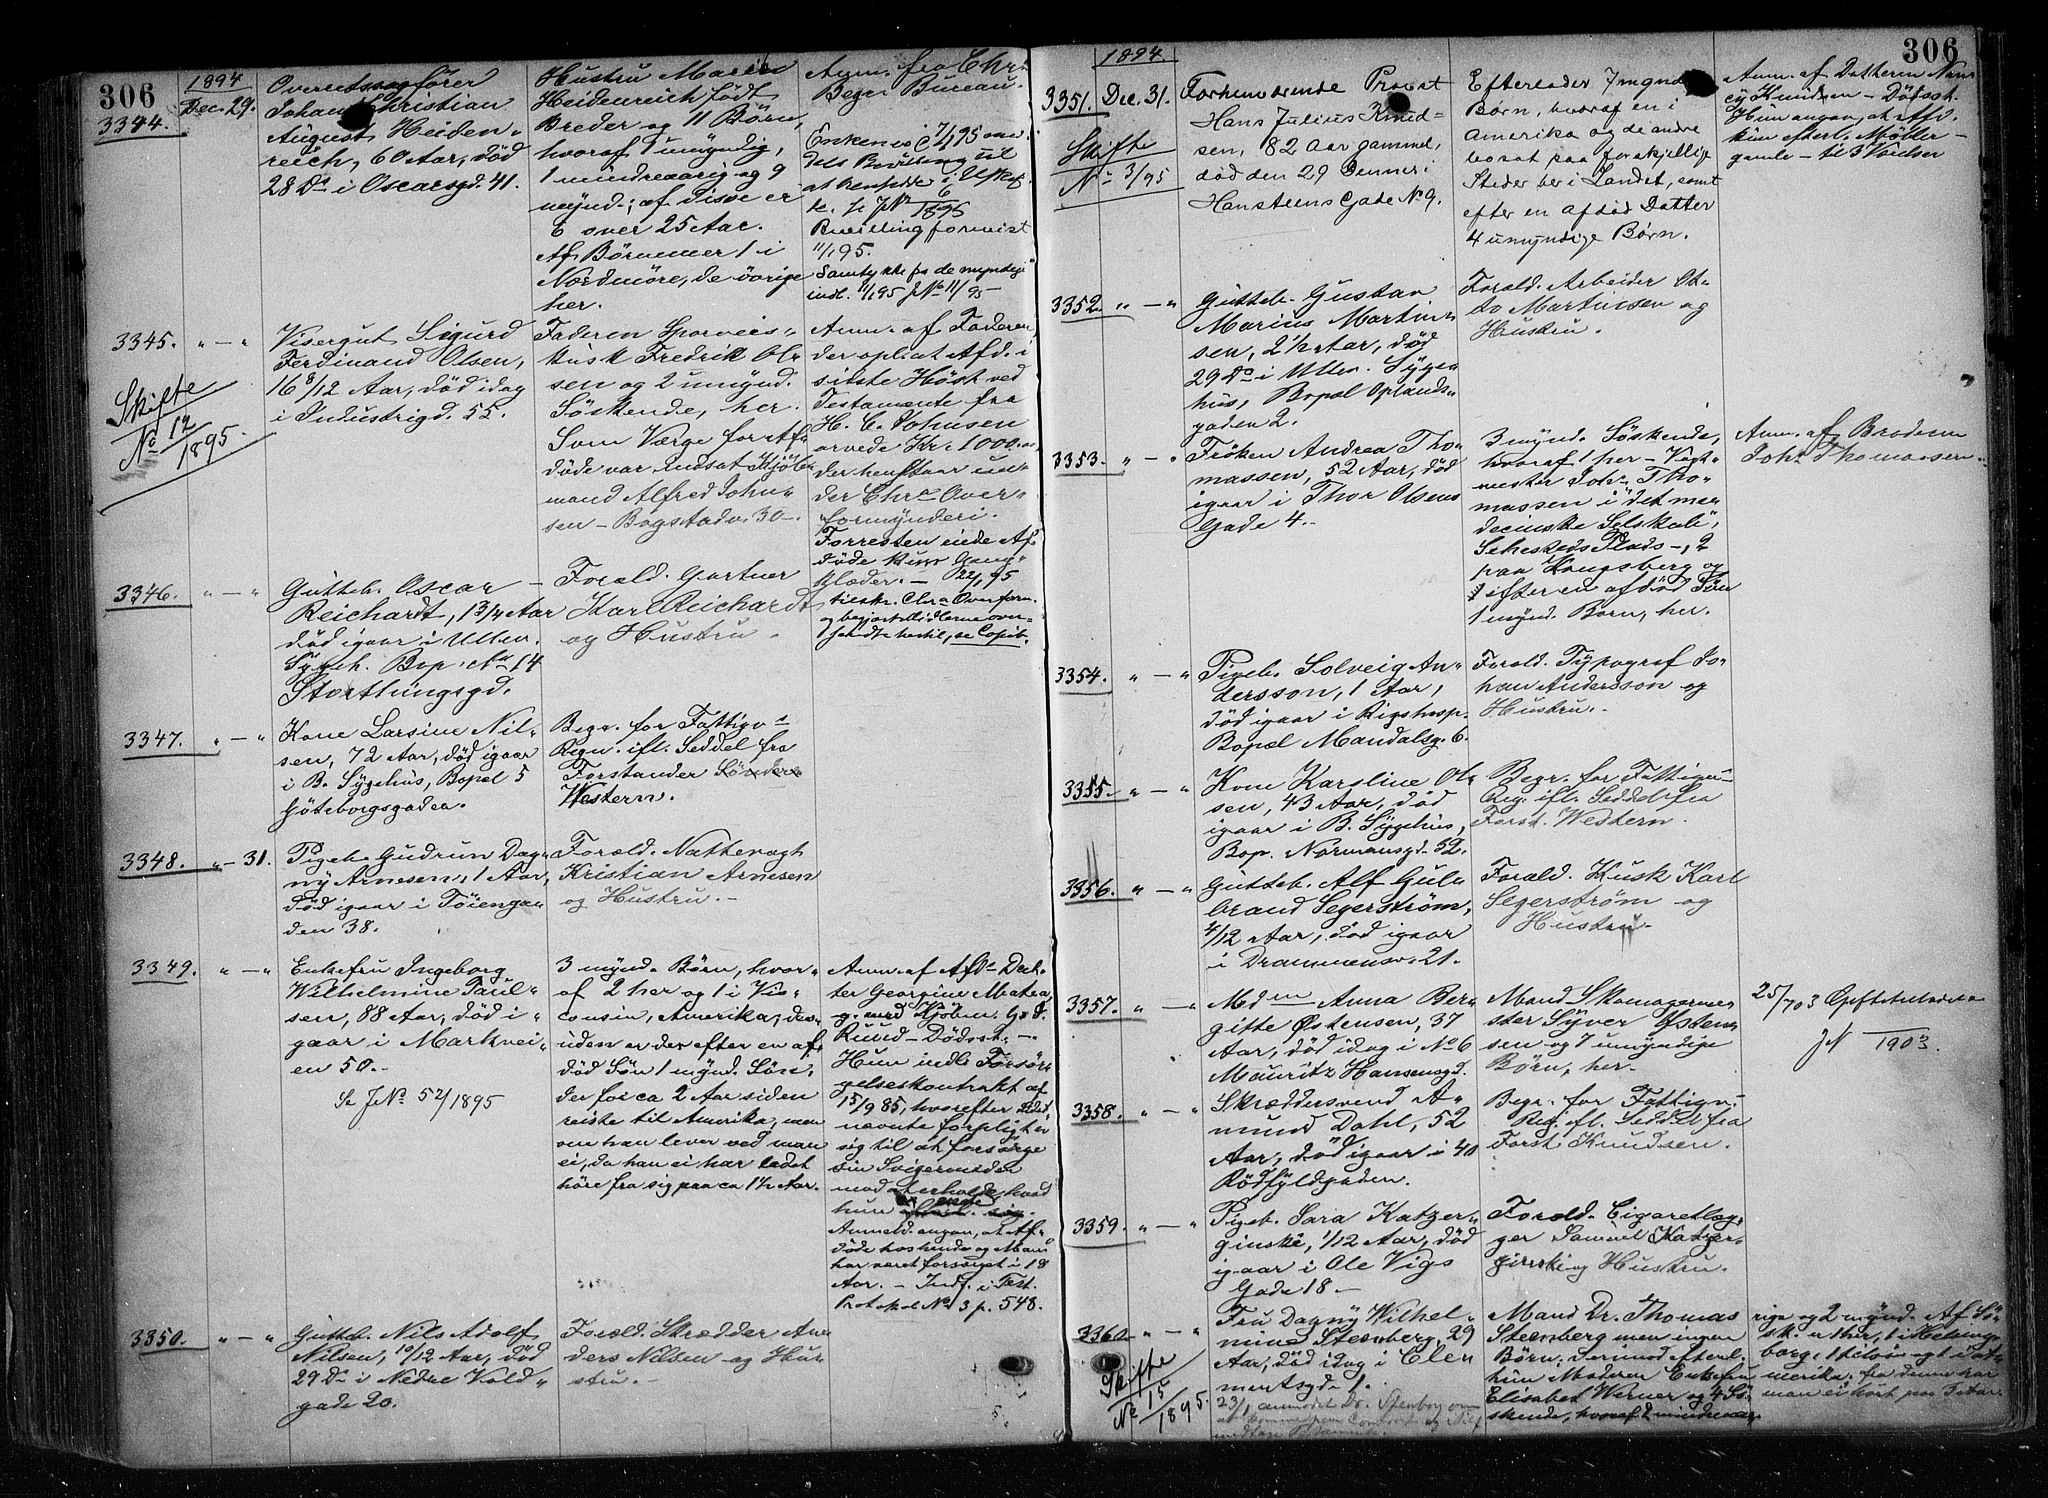 306
1894
3344.
Dec. 29.
Overretssagfører
Johan Christian
August Heiden-
reich, 60 Aar, død
28 Ds i Oscarsgd. 41.
Hustru Maren
Heidenreich født
Breder og 11 Børn,
hvoraf 1 umyndig,
1 mindreaarig og 9
mynd.; af disse er
6 over 25 Aar.
Af Børnene er 1 i
Nordmöre, de övrige
her.
Anm. fra Chr.
Begr. Bureau.
Enken
6
1895
Bevilling forevist
11/1 95.
Samtykke fra de myndige
indl. 11/1 95 J No 11/95
3345. " — "
Skifte
No 12
1895.
Visergut Sigurd
Ferdinand Olsen,
16 8/12 Aar, død idag
i Industrigd. 55.
Faderen Sporveis-
kusk Fredrik Ol-
sen og 2 umynd.
Søskende, her.
Som Værge for Af-
døde var indsat Kjöb-
mand Alfred John-
sen – Bogstadv. 30 –.
Anm. af Faderen
der oplyst Afd. i
sidste Höst ved
Testamente fra
H. C. Johnsen
arvede Kr. 1000.00
der henstaar un-
der Chra Over-
formynderi.
Forresten eiede Af-
døde kun Gang-
klæder. — 22/1 95
tilskr. Chra Overform.
og begjært Midlerne over-
sendte hertil, se Copib.
3346. " — "
Gutteb. Oscar
Reichardt, 1 3/4 Aar
død igaar i Ullev.
Sygeh. Bop. No 14
Storthingsgd.
Foræld. Gartner
Karl Reichardt
og Hustru.
3347. " — "
Kone Larsine Nil-
sen, 72 Aar, død igaar
i B. Sygehus, Bopæl 5
Göteborgsgaden.
Begr. for Fattigv.s
Regn. ifl. Seddel fra
Forstander
Western.
3348. " – 31.
Pigeb. Gudrun Dag-
ny Arnesen, 1 Aar,
død igaar i Töienga-
den 38.
Foræld. Nattevagt
Kristian Arnesen
og Hustru. –
3349. " — "
Enkefru Ingeborg
Wilhelmine Paul-
sen, 88 Aar, død i-
gaar i Markvei-
en 50. –
Se J No 52/1895
3 mynd. Børn, hvor-
af 2 her og 1 i Vis-
consin, Amerika; des-
uden er der efter en af-
død Søn 1 mynd. Søn,
der for ca 2 Aar siden
reiste til Amerika, men
om han lever ved man
ei, da han ei har ladet
høre fra sig paa ca 1 1/2 Aar.
Anm. af Afds Dat-
ter Georgine Mathea
g. med Kjöbm. G. A.
Ruud – Dødsst. –
Hun indl. Forsör-
gelseskontrakt af
15/9 85, hvorefter sidst-
nævnte forpligter
sig til at forsørge
sin Svigermoder
mod at erholde, hvad
hun
Anmeld. angav, at Af-
døde hos hende og Mand
har været forsörget i 18
Aar. – Indf. i Test.
Protokol No 3 p. 548.
3350. " — "
Gutteb. Nils Adolf
Nilsen, 10/12 Aar, død
29 Ds i Nedre Vold-
gade 20.
Foræld. Skrædder An-
ders Nilsen og Hu-
stru. –
306
1894.
3351. Dec. 31.
Skifte
No 3/95
Forhenværende Provst
Hans Julius Knud-
sen, 82 Aar gammel,
død den 29 Dennes i
Hansteens Gade No 9.
Efterlader 7 mynd.
Børn, hvoraf en i
Amerika og de andre
bosat paa forskjellige
Steder her i Landet, samt
efter en afdød Datter
4 umyndige Børn.
Anm. af Datteren Nan-
cy Knudsen – Dødsst.
Hun angav, at Afd.
kun efterl. Møbler –
gamle –
3352. " — "
Gutteb. Gustav
Marius Martin-
sen, 2 1/2 Aar, død
29 Ds i Ullev. Syge-
hus, Bopæl Oplands-
gaden 2.
Foræld. Arbeider Ot-
to Martinsen og
Hustru.
3353. " — "
Frøken Andrea Tho-
massen, 52 Aar, død
igaar i Thor Olsens
Gade 4. –
3 mynd. Søskende,
hvoraf 1 her – Vagt-
mester Joh. Tho-
massen i "det me-
decinske Selskab",
Sehesteds Plads –, 2
paa Kongsberg og
efter en afdød Søn
1 mynd. Barn, her.
Anm. af Broderen
Joh. Thomassen.
3354. " — "
Pigeb. Solveig An-
dersson, 1 Aar,
død igaar i Rigshosp.
Bopæl Mandalsg. 6.
Foræld. Typograf Jo-
han Andersson og
Hustru. –
3355. " — "
Kone Karoline Ol-
sen, 43 Aar, død
igaar i B. Sygehus,
Bop. Normansgd. 52.
Begr. for Fattigv.
Reg. ifl. Seddel fra
Forst. Western.
3356. " — "
Gutteb. Alf Gul-
brand Segerström,
4/12 Aar, død igaar
i Drammensv. 21.
Foræld. Kusk Karl
Segerström og
Hustru.
3357. " — "
Mdmn Anna Ber-
gitte Østensen, 37
Aar, død idag i No 6
Mauritz Hansensgd.
Mand Skomagerme-
ster Syver Østen-
sen og 7 umyndige
Børn, her.
25/7 03
JN 1903.
3358. " — "
Skræddersvend A-
mund Dahl, 52
Aar, død igaar i 40
Rödfyldgaden.
Begr. for Fattigv.
Reg. ifl. Seddel fra
Forst. Knudsen.
3359. " — "
Pigeb. Sara Katzer-
ginske, 1/12 Aar, død
igaar i Ole Vigs
Gade 18 –
Foræld. Cigaretlag-
ger Samuel Katzer-
ginski og Hustru.
3360 " — "
Skifte
No 15
1895.
Fru Dagny Wilhel-
mine Steenberg, 29
Aar, død idag i Cle-
mentsgd. 1.
23/1 anmodet Dr. Stenberg om
Mand Dr. Thomas
Steenberg men ingen
Børn; derimod efterl.
hun Moderen Enkefru
Elisabet Werner og 4 Sö-
skende, hvoraf 2 mindreaa-
rige og 2 mynd. Af Sö-
sk. er 1 her, 1
borg, 1 tilsös og 1 i A-
merika; fra denne har
man ei hørt paa 7 Aar.